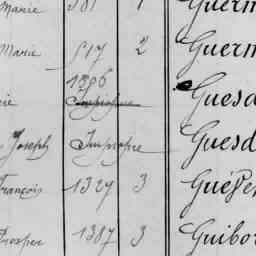 Marie 581 1 Guerm
Marie 517 2 Guerm
1296
rie Impropre Guesd
Joseph Impropre Guesd
François 1327 3 Guépe
Prosper 1387 3 Guibor